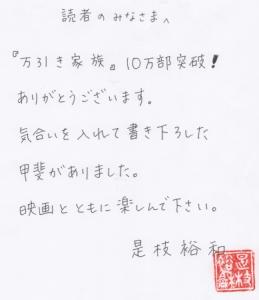 読者のみなさまへ
『万引き家族』10万部突破!
ありがとうございます。
気合いを入れて書き下ろした
甲斐がありました。
映画とともに楽しんで下さい。
是枝裕和